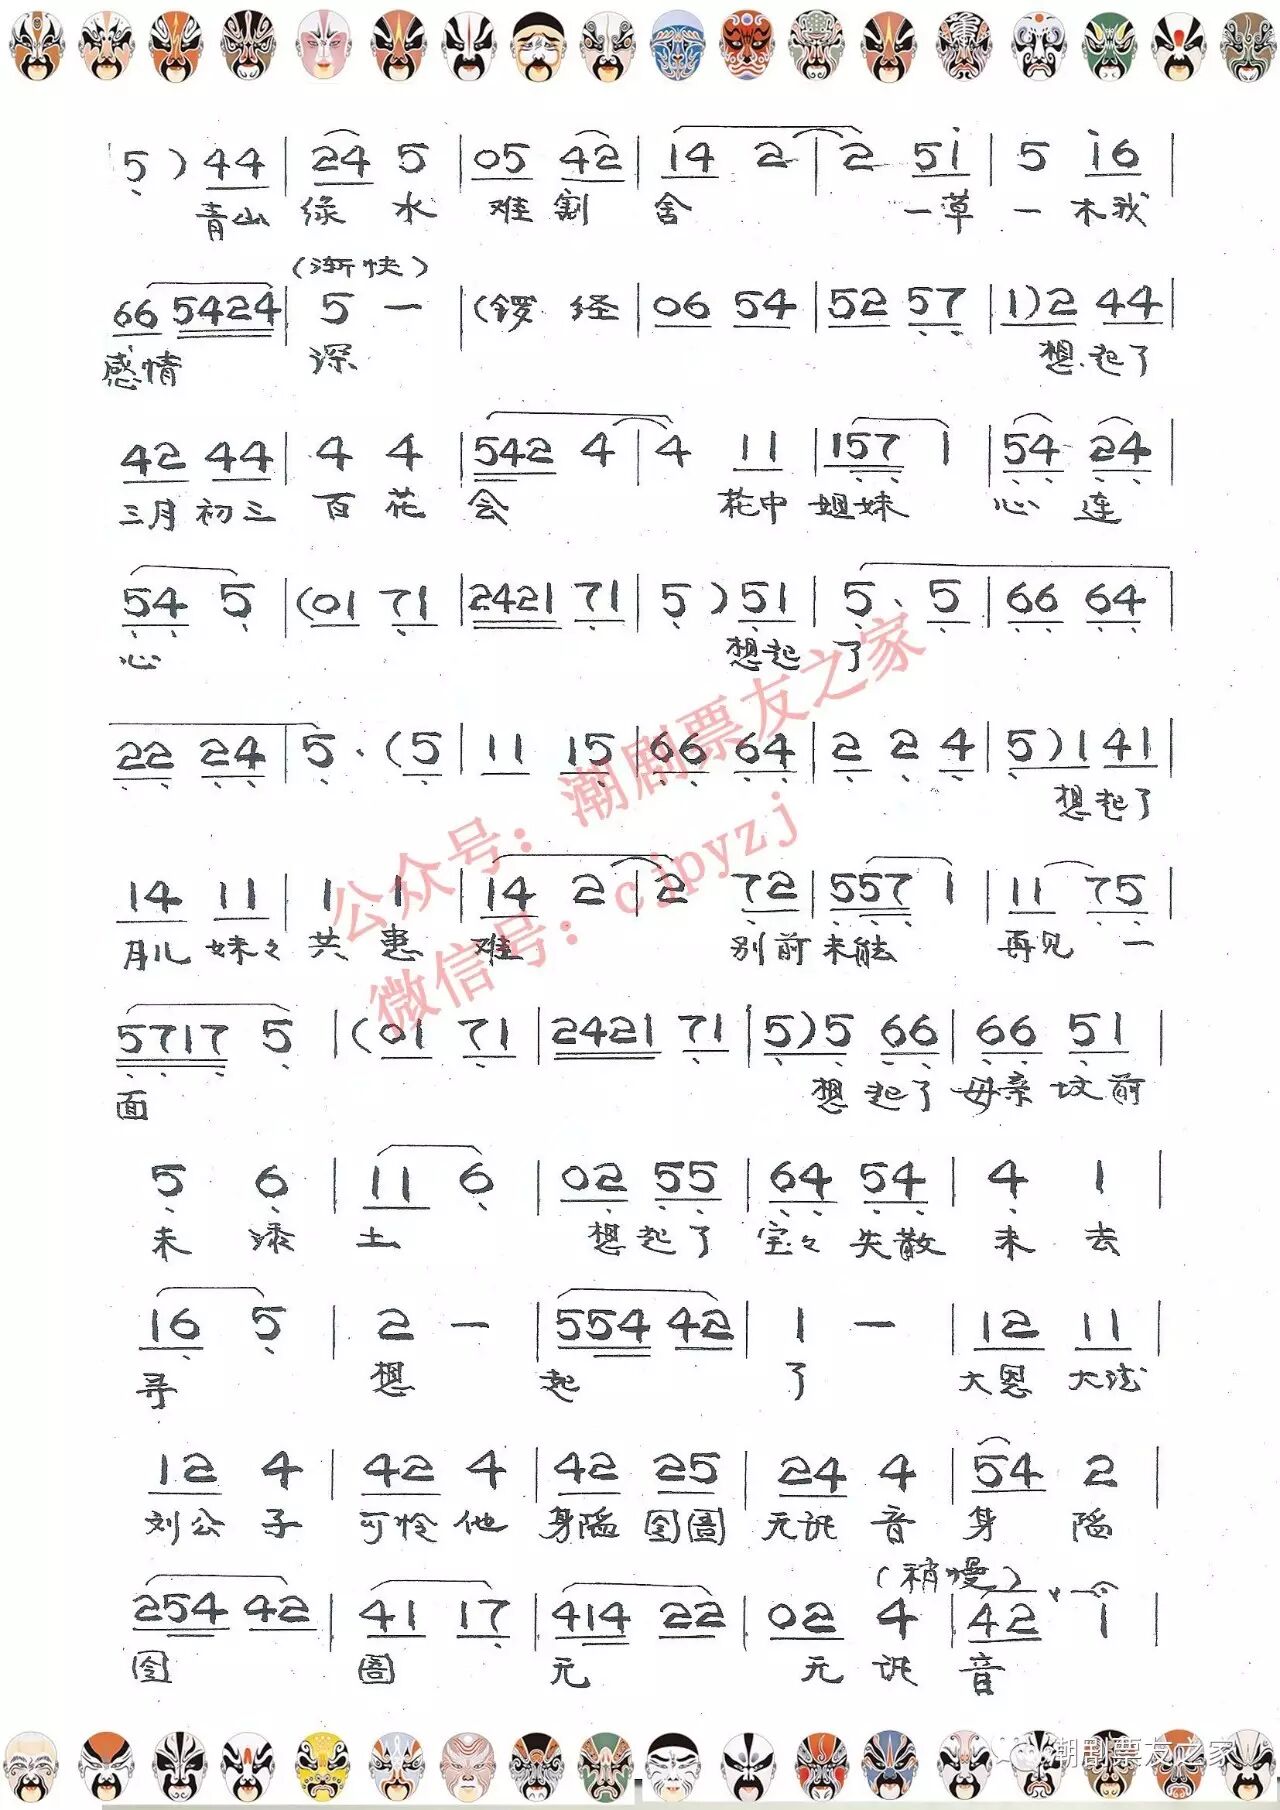 5 ) 44 | 24 5 | 05 42 | 14 2 | 2 5i | 5 i6 |
青山 绿 水 难 割 舍 一草 一 木我
(渐快)
66 5424 | 5 — | (锣 经 | 06 54 | 52 57 | 1)2 44 |
感情 深 想起了
42 44 | 4 4 | 542 4 | 4 11 | 157 1 | 54 24 |
三月初三 百花 会 花中姐妹 心 连
54 5 | (01 71 | 2421 71 | 5 ) 51 | 5. 5 | 66 64 |
心 想起 了
22 24 | 5. (5 | 11 15 | 66 64 | 2 2 4 | 5)1 41 |
想起了
14 11 | 1 1 | 14 2 | 2 72 | 557 1 | 11 75 |
月儿 妹々 共 患 难 别前未能 再见 一
5717 5 | (01 71 | 2421 71 | 5)5 66 | 66 51 |
面 想 起了 母亲 坟前
5 6 | 11 6 | 02 55 | 64 54 | 4 1 |
未 添 土 想 起了 宝々 失散 未 去
16 5 | 2 — | 554 42 | 1 — | 12 11 |
寻 想 起 了 大恩 大德
12 4 | 42 4 | 42 25 | 24 4 | 54 2 |
刘公 子 可怜 他 身陷囹圄 无讯 音 身 陷
(稍慢)
254 42 | 41 17 | 414 22 | 02 4 | 42 1 |
囹 圄 无 无 讯 音
公众号：潮剧票友之家
微信号：cjpyzj
潮剧票友之家